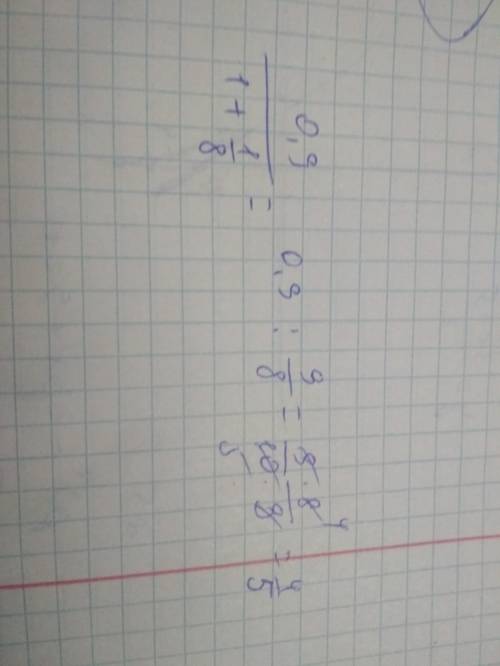 0,9 / (1 + 1/8) = 0,9 : 9/8 = (9 · 8) / (10 · 9) = 4/5
5 4